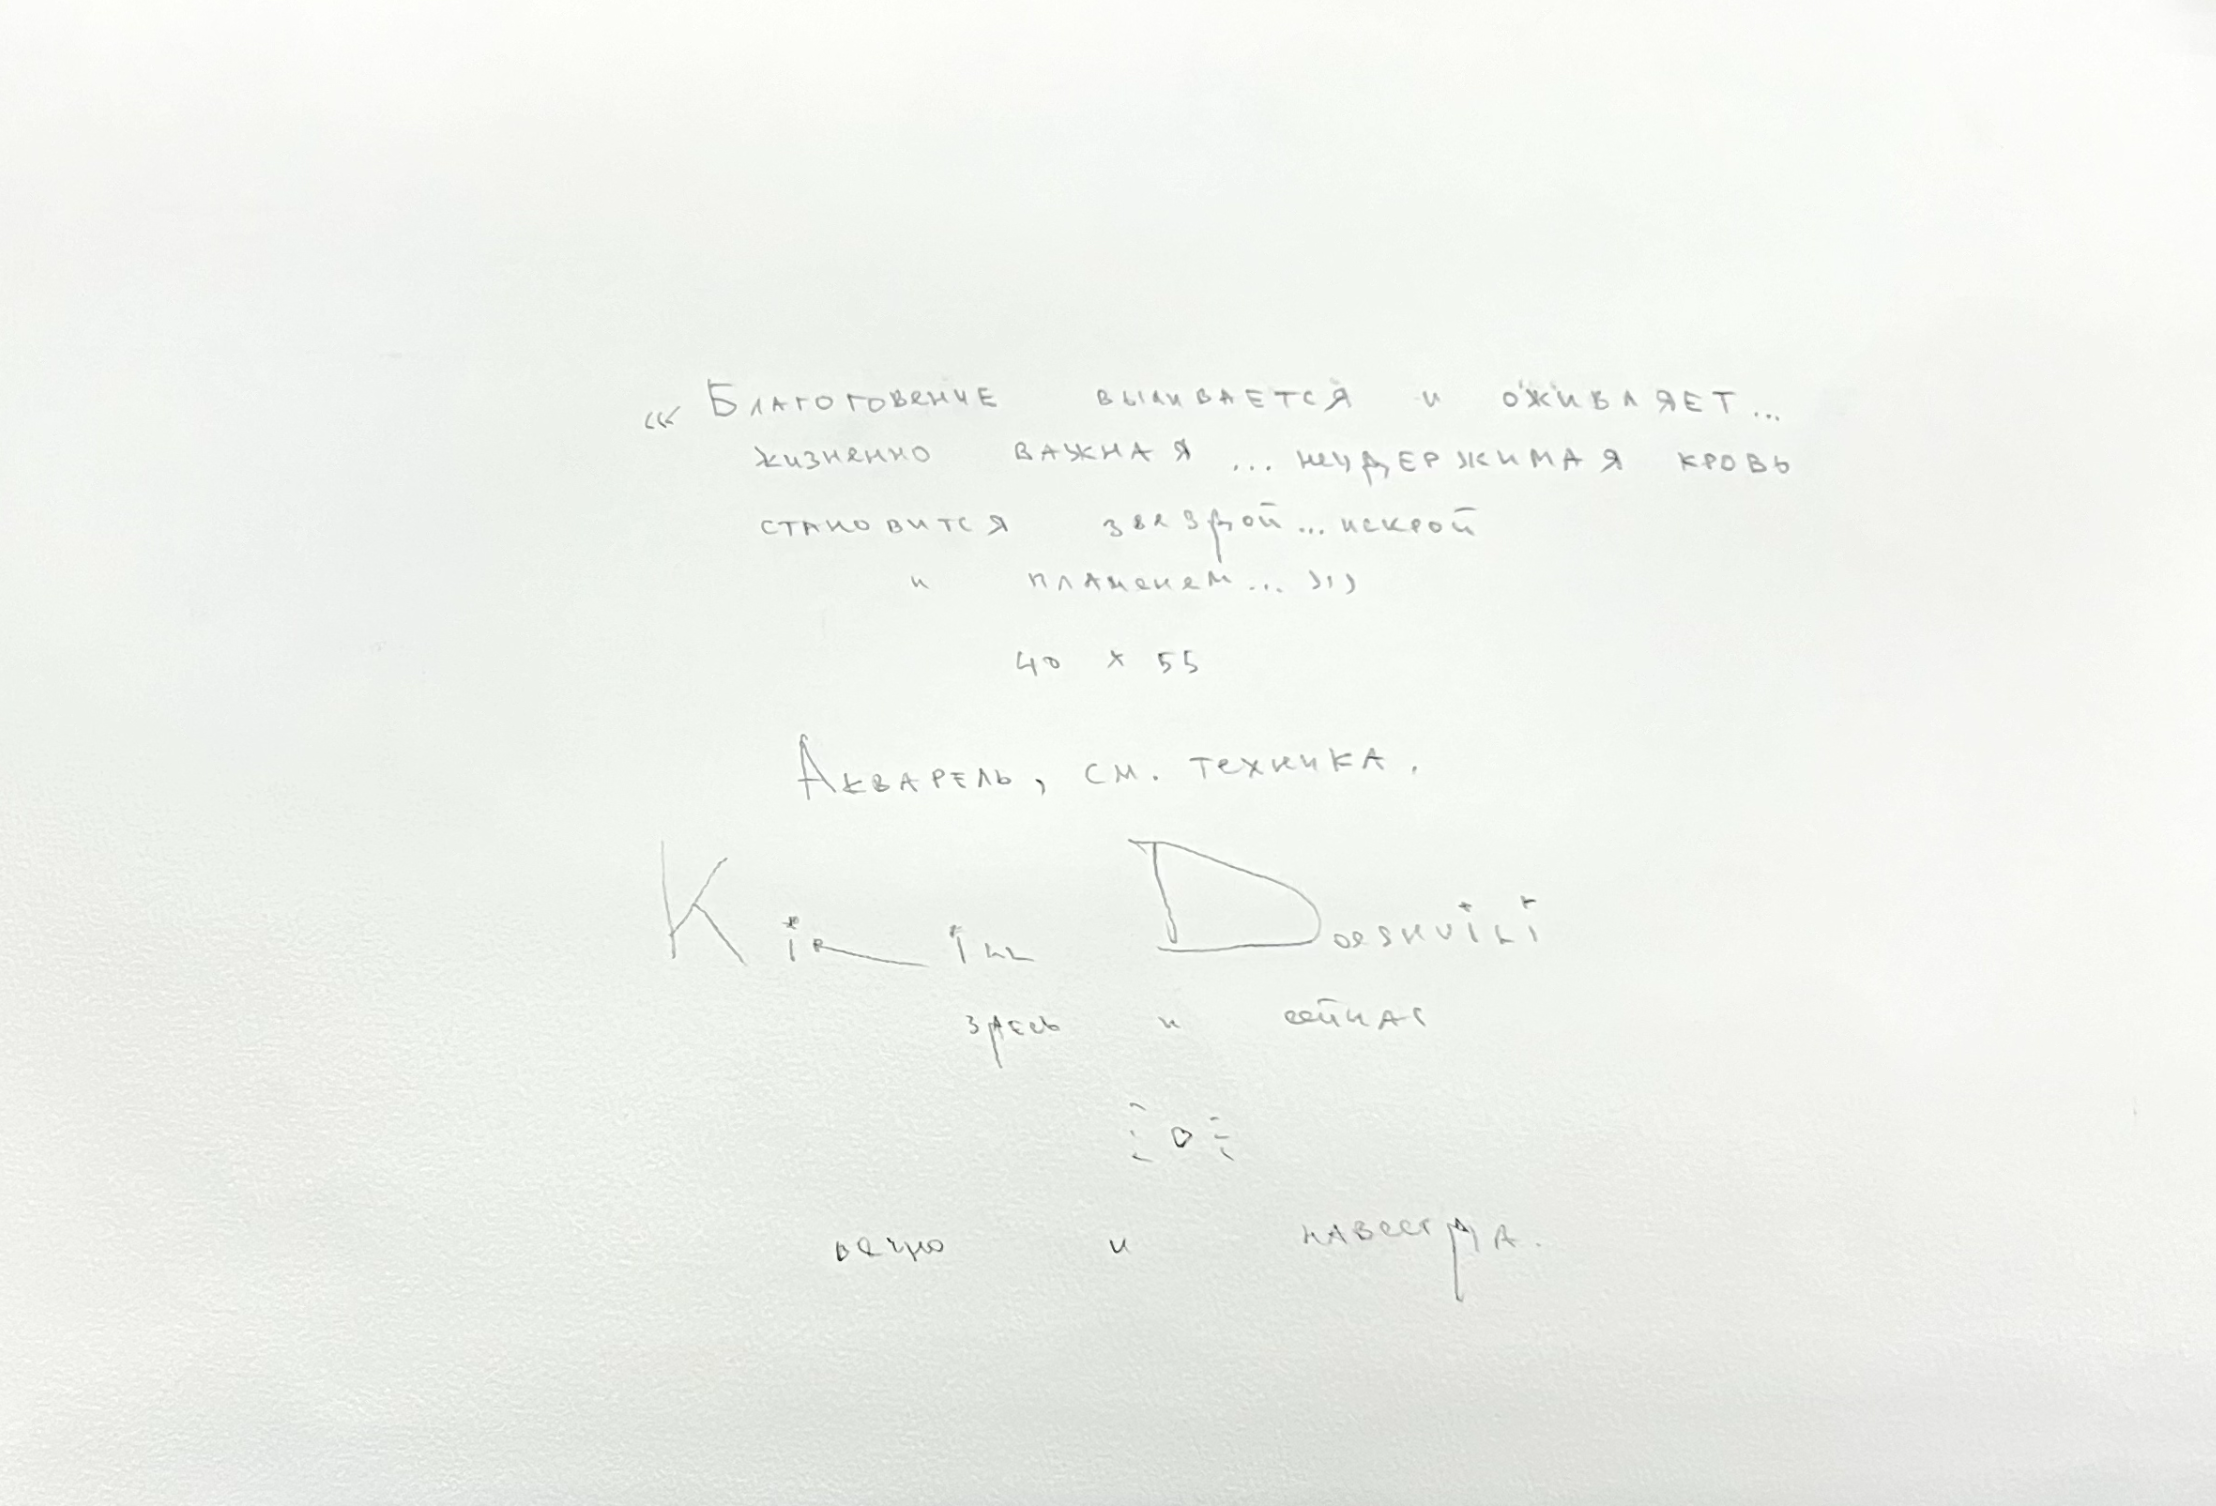 ««« Благоговение выливается и оживляет...
жизненно важная ... неудержимая кровь
становится звездой... искрой
и пламенем... )))
40 x 55
Акварель, см. техника.
Kirill Doeshvili
здесь и сейчас
вечно и навсегда.